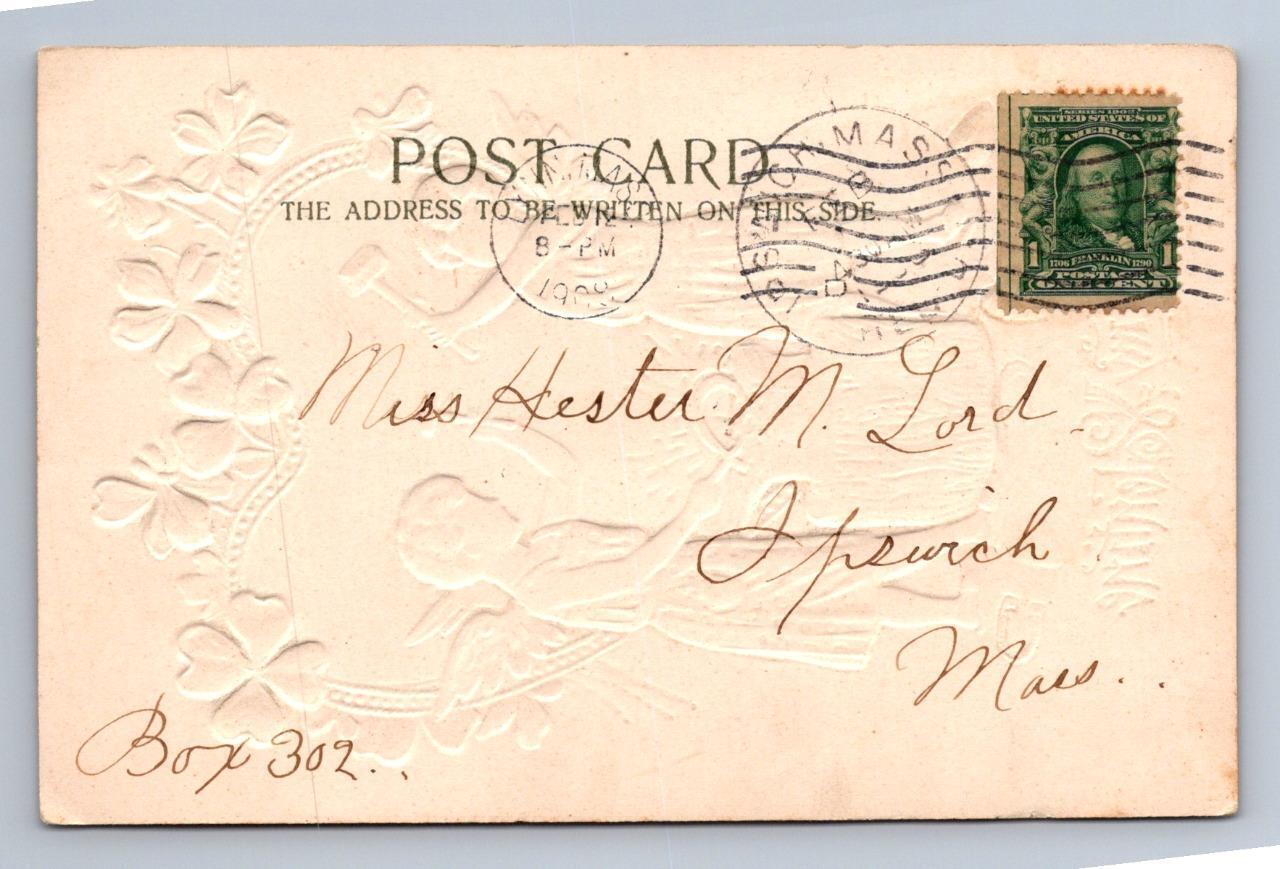 POST CARD
THE ADDRESS TO BE WRITTEN ON THIS SIDE.
FEB 12
8-PM
1908
IPSWICH MASS
SERIES 1902
UNITED STATES OF
AMERICA
1 1706 FRANKLIN 1790 1
POSTAGE
ONE CENT
Miss Hester M. Lord.
Ipswich
Mass..
Box 302..